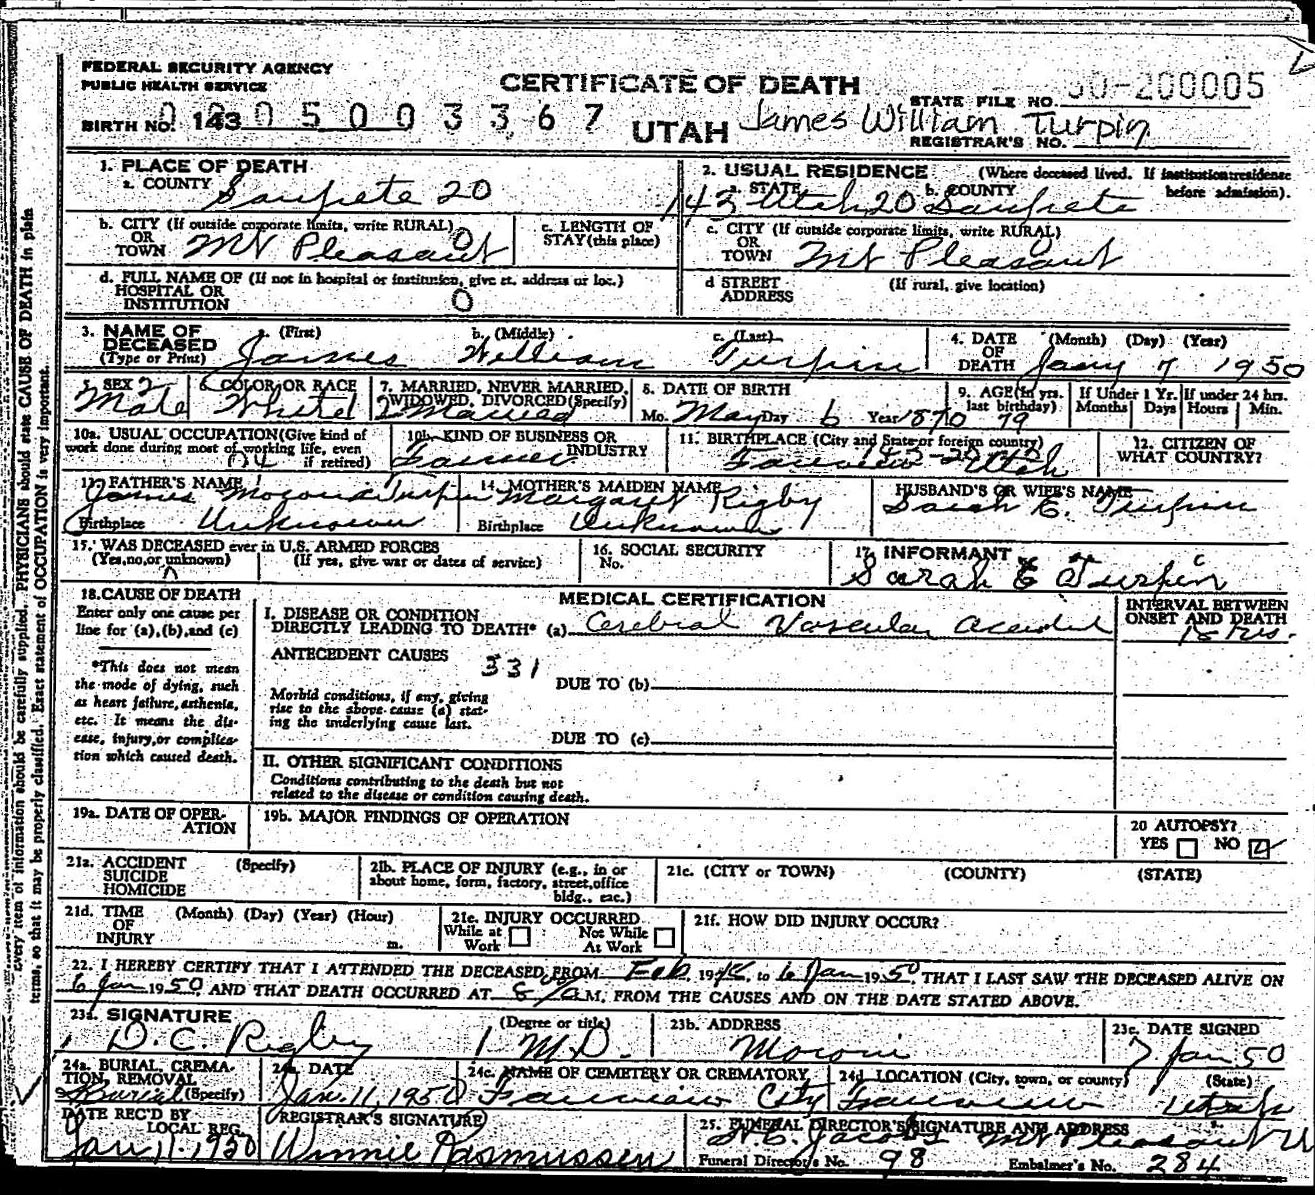 FEDERAL SECURITY AGENCY
PUBLIC HEALTH SERVICE
CERTIFICATE OF DEATH
50-200005
STATE FILE NO.
BIRTH NO. 143 0 5 0 0 3 3 6 7
UTAH
James William Turpin
REGISTRAR'S NO.
1. PLACE OF DEATH
a. COUNTY Sanpete 20
2. USUAL RESIDENCE (Where deceased lived. If institution: residence before admission).
a. STATE 143 Utah 20 b. COUNTY Sanpete
b. CITY (If outside corporate limits, write RURAL) 0
OR
TOWN Mt Pleasant
c. LENGTH OF
STAY (this place)
c. CITY (If outside corporate limits, write RURAL) 0
OR
TOWN Mt Pleasant
d. FULL NAME OF (If not in hospital or institution, give st. address or loc.)
HOSPITAL OR
INSTITUTION 0
d STREET (If rural, give location)
ADDRESS
3. NAME OF DECEASED
(Type or Print)
a. (First) James
b. (Middle) William
c. (Last) Turpin
4. DATE OF DEATH (Month) (Day) (Year)
Jany 7 1950
5 SEX 2
Male
6 COLOR OR RACE
White 1
7. MARRIED, NEVER MARRIED, WIDOWED, DIVORCED (Specify)
2 Married
8. DATE OF BIRTH
Mo. May Day 6 Year 1870
9. AGE (in yrs. last birthday) 79
If Under 1 Yr. Months Days
If under 24 hrs. Hours Min.
10a. USUAL OCCUPATION (Give kind of work done during most of working life, even if retired)
10b. KIND OF BUSINESS OR INDUSTRY
Farmer
11. BIRTHPLACE (City and State or foreign country)
Fairview Utah
12. CITIZEN OF WHAT COUNTRY?
13. FATHER'S NAME
James Moroni Turpin
Birthplace Unknown
14. MOTHER'S MAIDEN NAME
Margaret Rigby
Birthplace Unknown
HUSBAND'S OR WIFE'S NAME
Sarah E. Turpin
15. WAS DECEASED ever in U.S. ARMED FORCES
(Yes, no, or unknown) (If yes, give war or dates of service)
16. SOCIAL SECURITY
No.
17. INFORMANT
Sarah E Turpin
18. CAUSE OF DEATH
Enter only one cause per line for (a), (b), and (c)
*This does not mean the mode of dying, such as heart failure, asthenia, etc. It means the disease, injury, or complication which caused death.
MEDICAL CERTIFICATION
I. DISEASE OR CONDITION
DIRECTLY LEADING TO DEATH* (a) Cerebral Vascular Accident
INTERVAL BETWEEN ONSET AND DEATH
hrs.
ANTECEDENT CAUSES 331
DUE TO (b)
Morbid conditions, if any, giving rise to the above cause (a) stating the underlying cause last.
DUE TO (c)
II. OTHER SIGNIFICANT CONDITIONS
Conditions contributing to the death but not related to the disease or condition causing death.
19a. DATE OF OPERATION
19b. MAJOR FINDINGS OF OPERATION
20 AUTOPSY?
YES NO
21a. ACCIDENT (Specify)
SUICIDE
HOMICIDE
21b. PLACE OF INJURY (e.g., in or about home, form, factory, street, office bldg., eac.)
21c. (CITY or TOWN) (COUNTY) (STATE)
21d. TIME (Month) (Day) (Year) (Hour)
OF
INJURY m.
21e. INJURY OCCURRED
While at Work Not While At Work
21f. HOW DID INJURY OCCUR?
22. I HEREBY CERTIFY THAT I ATTENDED THE DECEASED FROM Feb. 19 to 6 Jan 1950, THAT I LAST SAW THE DECEASED ALIVE ON
6 Jan 1950, AND THAT DEATH OCCURRED AT 8 A M, FROM THE CAUSES AND ON THE DATE STATED ABOVE.
23a. SIGNATURE (Degree or title)
D. C. Rigby M.D.
23b. ADDRESS
Moroni
23c. DATE SIGNED
7 Jan 50
24a. BURIAL, CREMATION, REMOVAL (Specify)
Burial
24b. DATE
Jan. 11, 1950
24c. NAME OF CEMETERY OR CREMATORY
Fairview City
24d. LOCATION (City, town, or county) (State)
Fairview Utah
DATE REC'D BY LOCAL REG.
Jan 11. 1950
REGISTRAR'S SIGNATURE
Winnie Rasmussen
25. FUNERAL DIRECTOR'S SIGNATURE AND ADDRESS
Jacobs Mt Pleasant U
Funeral Director's No. 98 Embalmer's No. 284
every item of information should be carefully supplied. PHYSICIANS should state CAUSE OF DEATH in plain
terms, so that it may be properly classified. Exact statement of OCCUPATION is very important.